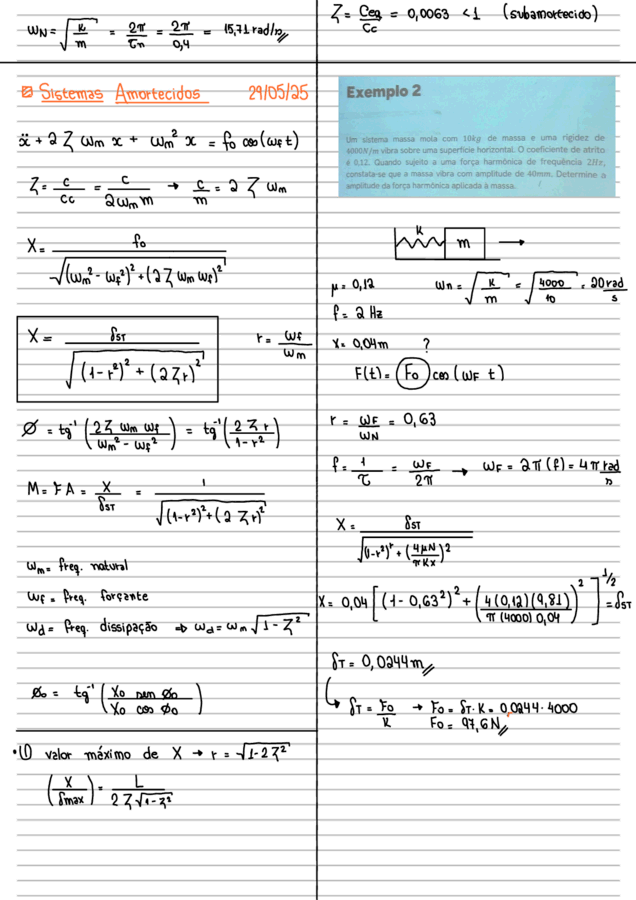 ωN = √(K/m) = 2π/τn = 2π/0,4 = 15,71 rad/s
ζ = Ceq/Cc = 0,0063 < 1 (subamortecido)
Sistemas Amortecidos 29/05/25
ẍ + 2 ζ ωm x + ωm² x = f0 cos(ωf t)
ζ = c/cc = c/(2ωm m) → c/m = 2 ζ ωm
X = f0/√((ωm² - ωf²)² + (2 ζ ωm ωf)²)
X = δST/√((1-r²)² + (2ζr)²)
r = ωf/ωm
Ø = tg⁻¹(2ζ ωm ωf/(ωm² - ωf²)) = tg⁻¹(2 ζ r/(1-r²))
M = FA = X/δST = 1/√((1-r²)² + (2 ζ r)²)
ωm = freq. natural
ωf = freq. forçante
ωd = freq. dissipação ⇒ ωd = ωm √(1 - ζ²)
Ø0 = tg⁻¹(X0 sen Ø0/X0 cos Ø0)
(1) valor máximo de X → r = √(1-2ζ²)
(X/δmax) = 1/(2 ζ √(1-ζ²))
Exemplo 2
Um sistema massa mola com 10kg de massa e uma rigidez de
4000N/m vibra sobre uma superfície horizontal. O coeficiente de atrito
é 0,12. Quando sujeito a uma força harmônica de frequência 2Hz,
constata-se que a massa vibra com amplitude de 40mm. Determine a
amplitude da força harmônica aplicada à massa.
K
m
μ = 0,12
ωn = √(K/m) = √(4000/10) = 20 rad/s
f = 2 Hz
X = 0,04m ?
F(t) = F0 cos(ωF t)
r = ωF/ωN = 0,63
f = 1/τ = ωF/2π → ωF = 2π(f) = 4π rad/s
X = δST/√((1-r²)² + (4μN/πKX)²)
X = 0,04 [(1 - 0,63²)² + (4(0,12)(9,81)/π(4000)0,04)²]^1/2 = δST
δT = 0,0244m
δT = F0/K → F0 = δT·K = 0,0244·4000
F0 = 97,6N